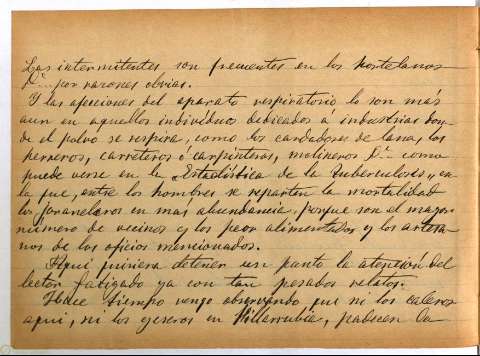 Las intermitentes son frecuentes en los hortelanos
&ª por razones obvias.
Y las afecciones del aparato respiratorio lo son mas
aun en aquellos individuos dedicados a industrias don-
de el polvo se respira, como los cardadores de lana, los
carreteros ó carpinteros, molineros &ª como
puede verse en la "Estadística de la tuberculosis" en
la que, entre los hombres se reparten la mortalidad
los jornaleros en más abundancia, porque son el mayor
número de vecinos y los peor alimentados y los artesa-
nos de los oficios mencionados.
Aqui quisiera detener un punto la atención del
lector fatigado ya con tan pesados relatos.
Hace tiempo vengo observando que ni los caleros
aqui, ni los yeseros en Villarrubia, padecen la